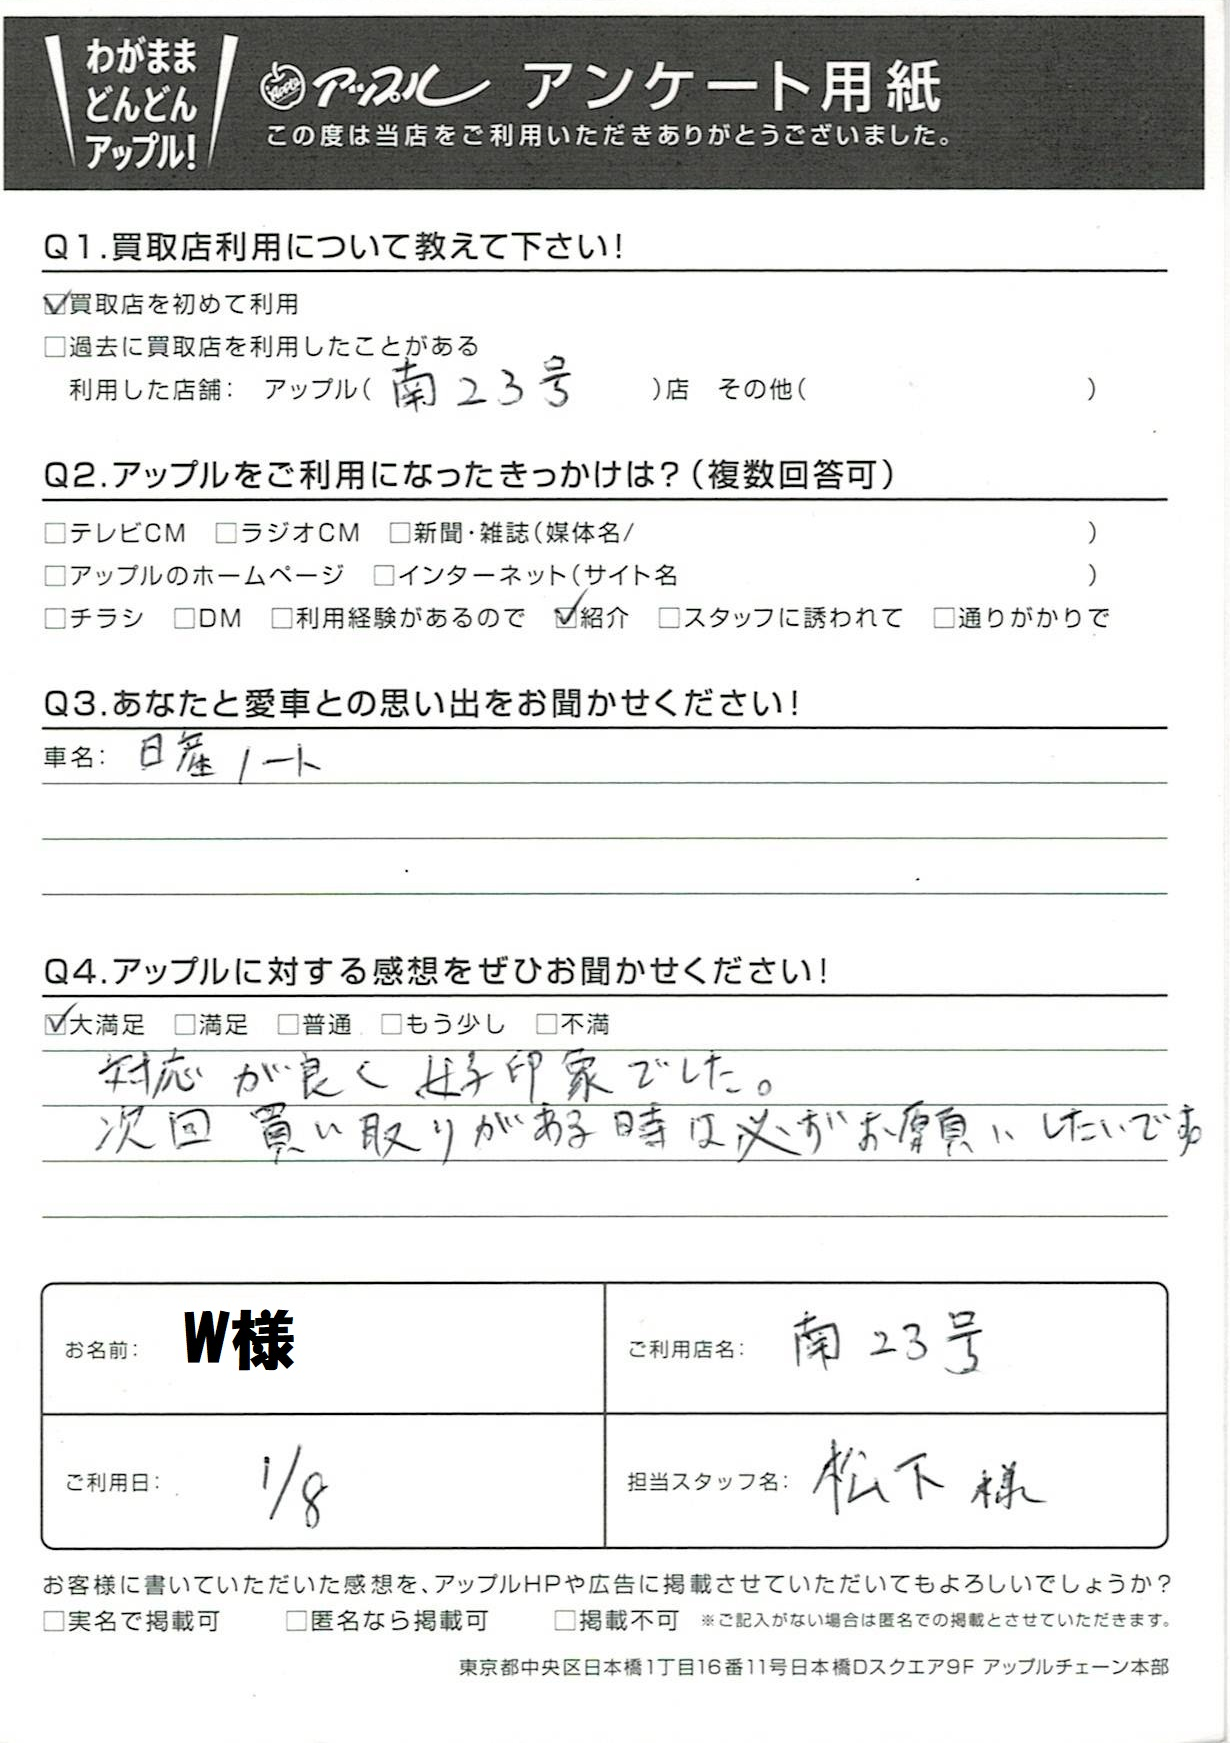 わがまま
どんどん
アップル!
Apple アップル アンケート用紙
この度は当店をご利用いただきありがとうございました。
Q1.買取店利用について教えて下さい!
☑買取店を初めて利用
□過去に買取店を利用したことがある
利用した店舗: アップル(南23号)店 その他( )
Q2.アップルをご利用になったきっかけは?(複数回答可)
□テレビCM □ラジオCM □新聞・雑誌(媒体名/ )
□アップルのホームページ □インターネット(サイト名 )
□チラシ □DM □利用経験があるので ☑紹介 □スタッフに誘われて □通りがかりで
Q3.あなたと愛車との思い出をお聞かせください!
車名: 日産ノート
Q4.アップルに対する感想をぜひお聞かせください!
☑大満足 □満足 □普通 □もう少し □不満
対応が良く好印象でした。
次回買い取りがある時は必ずお願いしたいです
お名前: W様
ご利用店名: 南23号
ご利用日: 1/8
担当スタッフ名: 松下様
お客様に書いていただいた感想を、アップルHPや広告に掲載させていただいてもよろしいでしょうか?
□実名で掲載可 □匿名なら掲載可 □掲載不可 ※ご記入がない場合は匿名での掲載とさせていただきます。
東京都中央区日本橋1丁目16番11号日本橋Dスクエア9F アップルチェーン本部